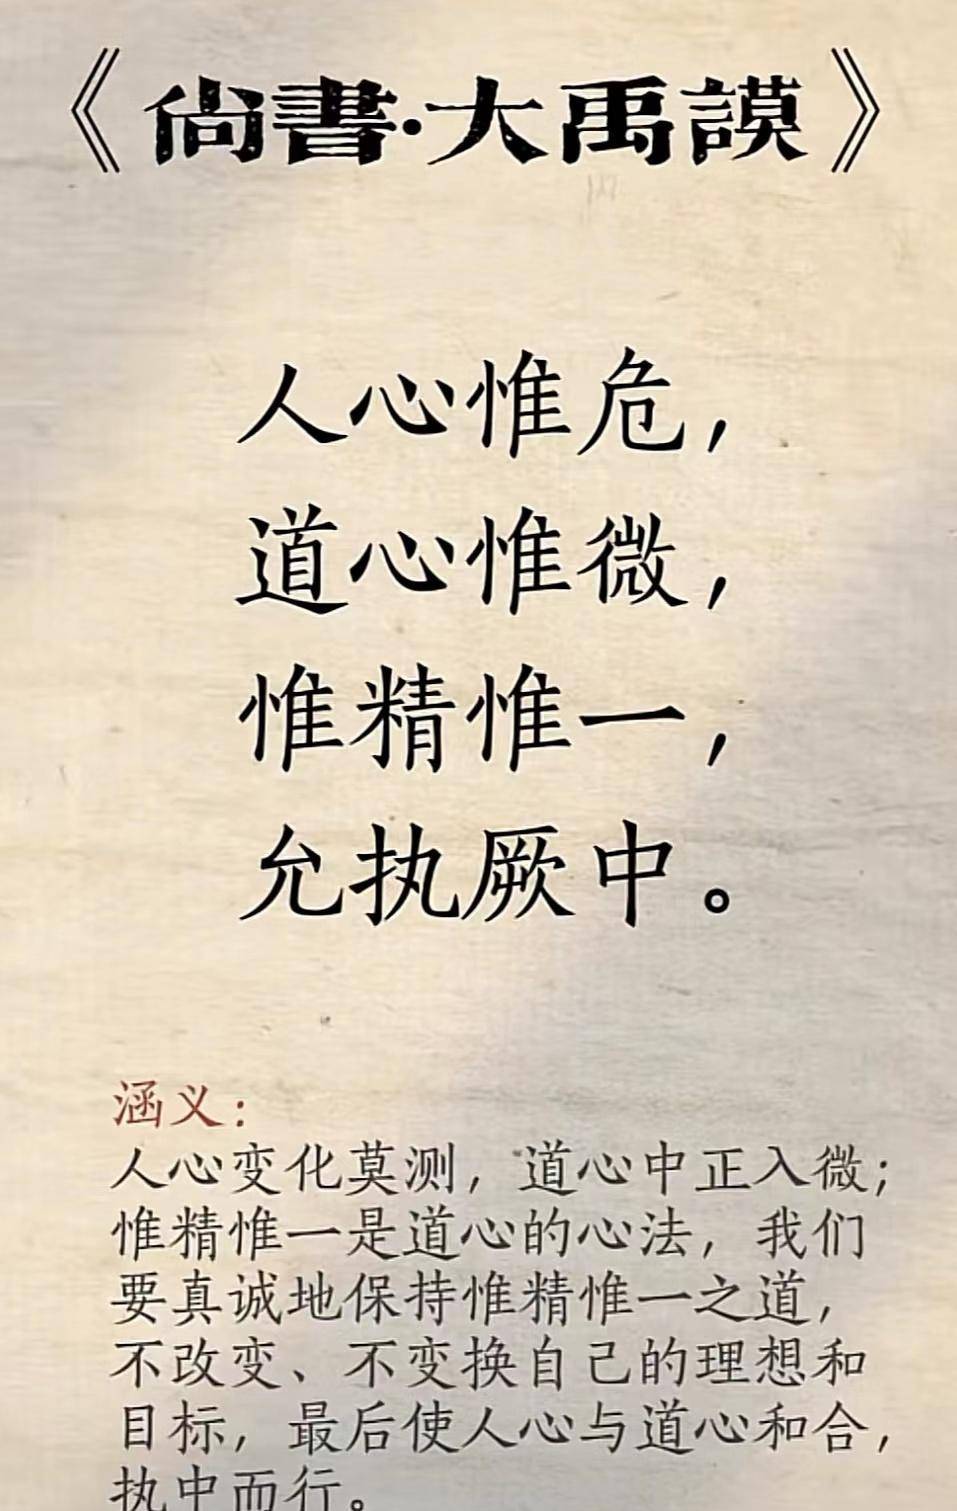 《尚書·大禹謨》
人心惟危，
道心惟微，
惟精惟一，
允执厥中。
涵义：
人心变化莫测，道心中正入微；
惟精惟一是道心的心法，我们
要真诚地保持惟精惟一之道，
不改变、不变换自己的理想和
目标，最后使人心与道心和合，
执中而行。